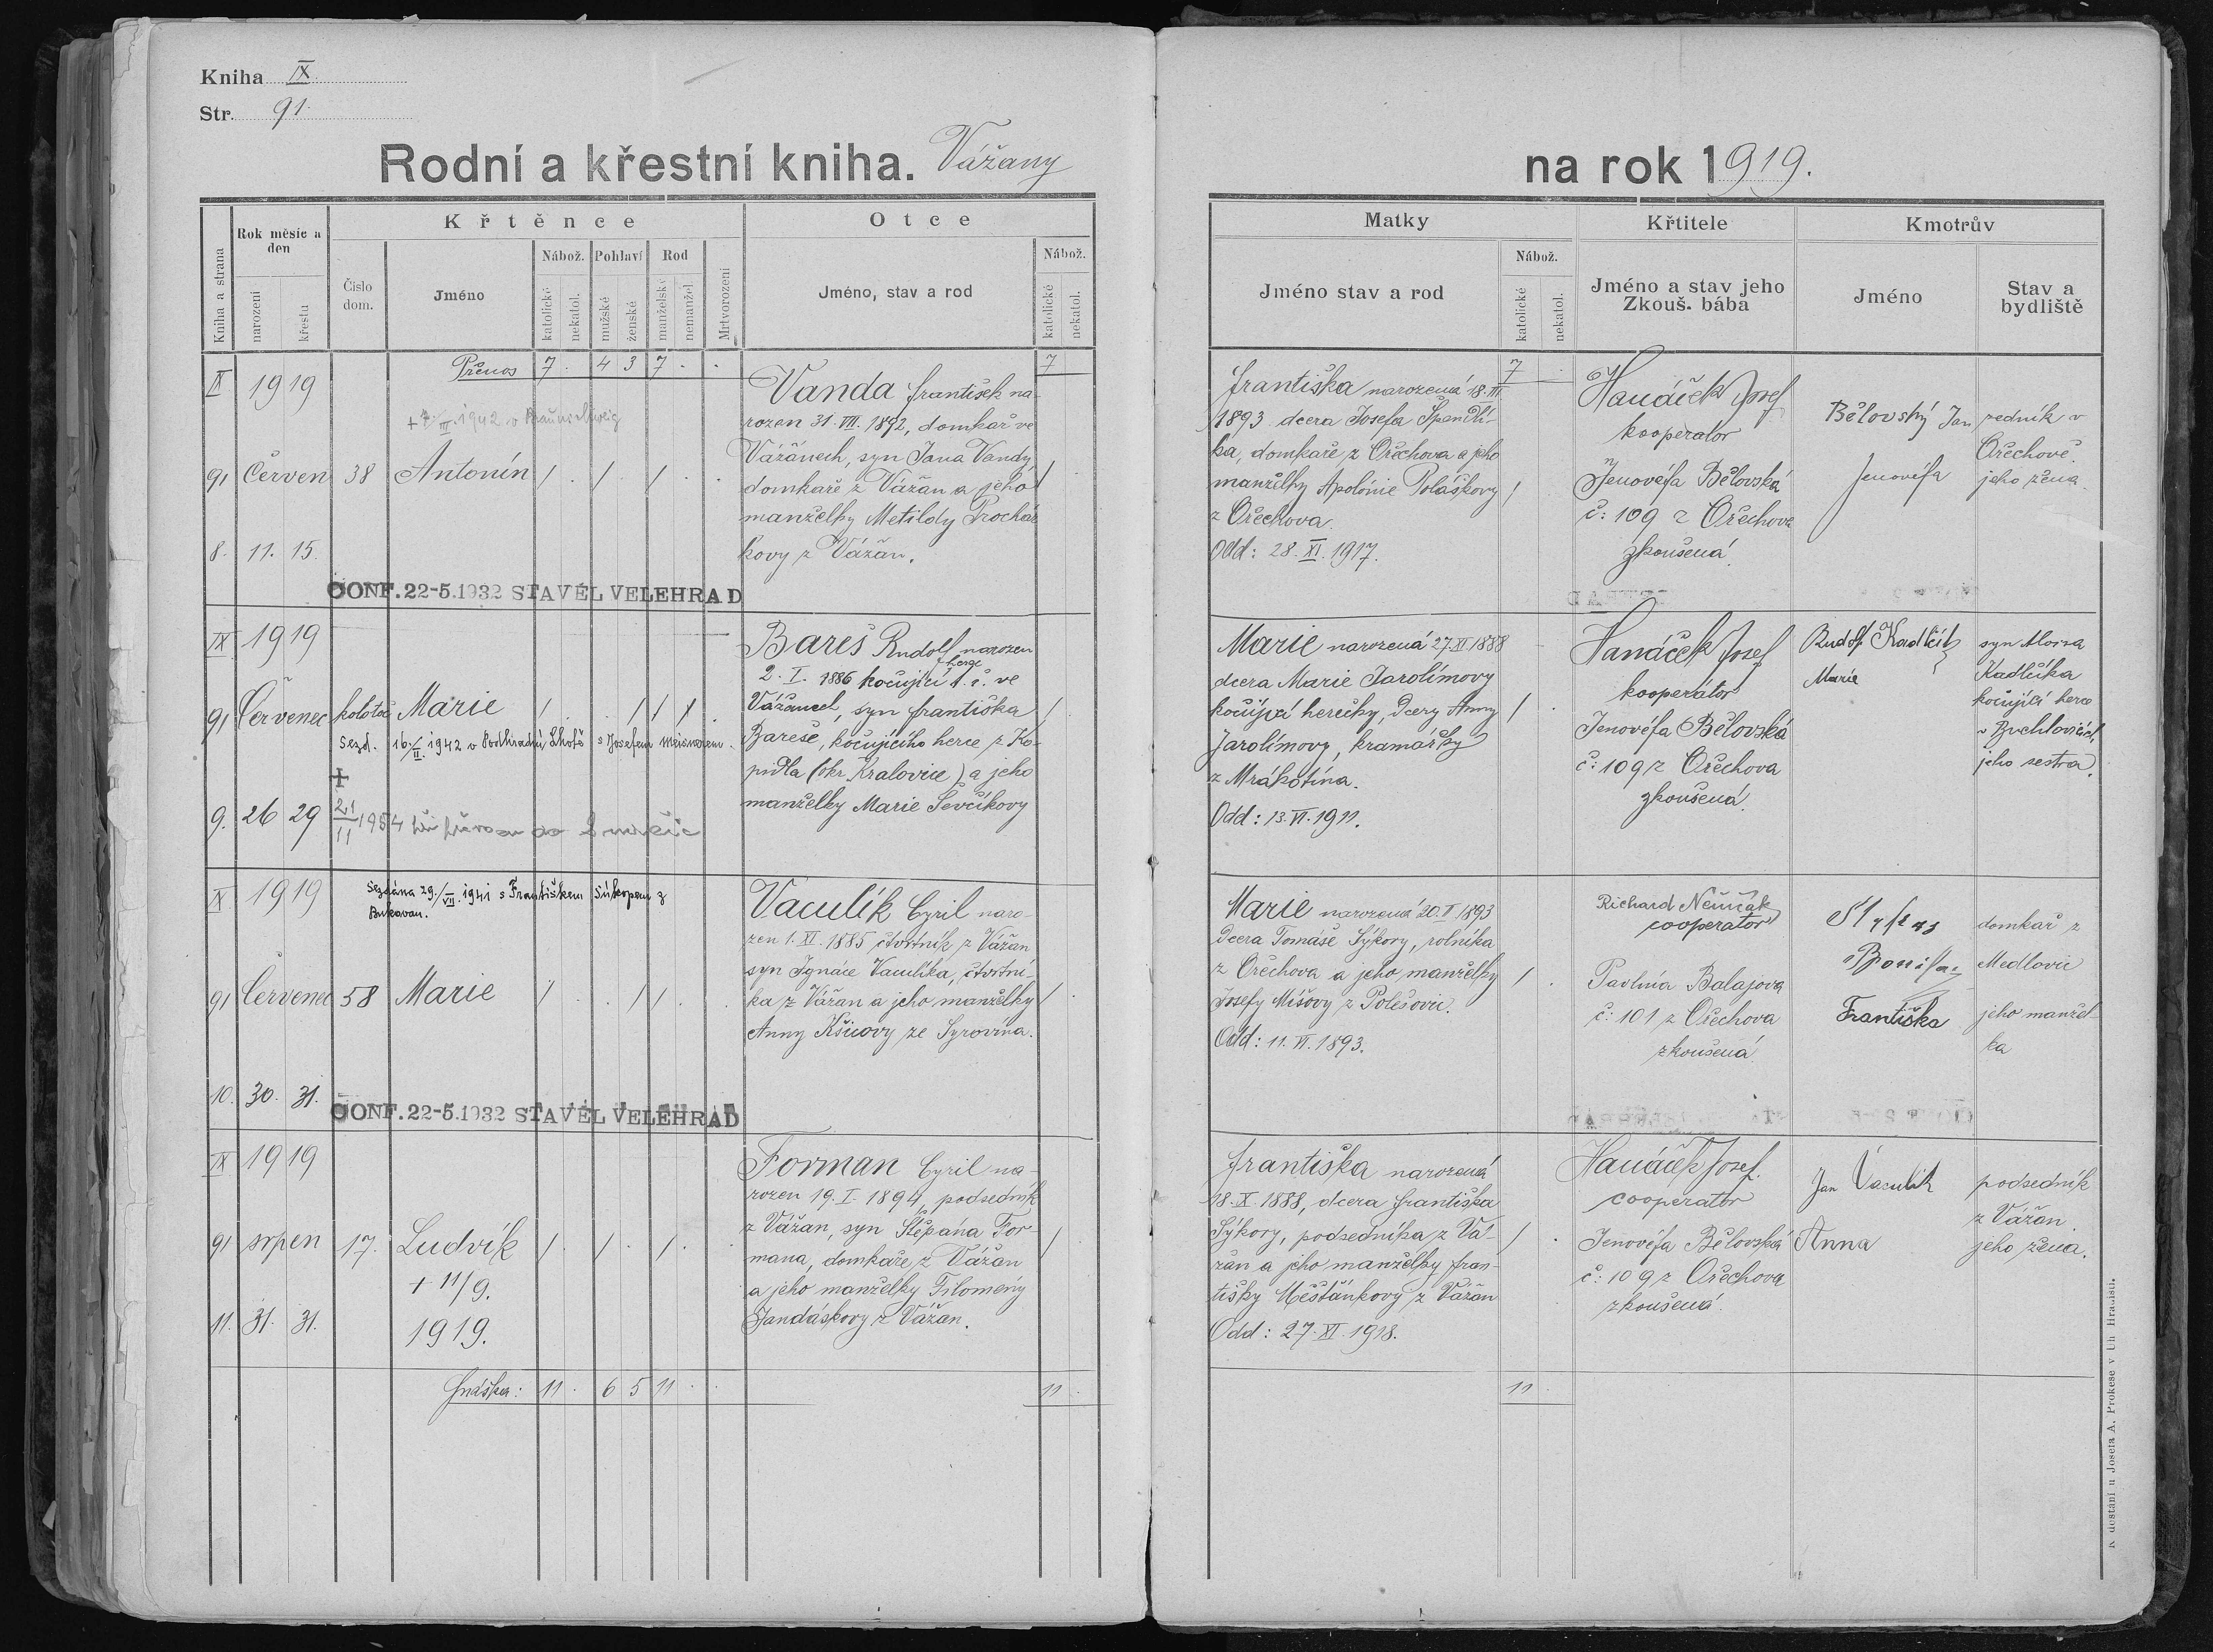 Kniha IX
Str. 91.
Rodní a křestní kniha. Vážany
na rok 1919.
Kniha a strana
Rok měsíc a den
narození
křestu
Křtěnce
Číslo dom.
Jméno
Nábož.
katolické
nekatol.
Pohlaví
mužské
ženské
Rod
manželské
nemanžel.
Mrtvorození
Otce
Jméno, stav a rod
Nábož.
katolické
nekatol.
Matky
Jméno stav a rod
Nábož.
katolické
nekatol.
Křtitele
Jméno a stav jeho
Zkouš. bába
Kmotrův
Jméno
Stav a
bydliště
Přenos 7 . 4 3 7 . . 7 7 .
IX 1919
91 Červen 38 Antonín 1 . 1 . 1 . . 1 1
8. 11. 15.
CONF. 22-5.1932 STAVĚL VELEHRAD
Vanda František na-
rozen 31. VII. 1892, domkař ve
Vážanech, syn Jana Vandy,
domkaře z Vážan a jeho
manželky Metildy Procház
kovy z Vážan.
Františka narozená 18. III.
1893 dcera Josefa Špandli-
ka, domkaře z Ořechova a jeho
manželky Apolonie Poláškovy
z Ořechova.
Odd: 28. XI. 1917.
Hanáček Josef
kooperator
Jenovéfa Bělovská
č: 109 z Ořechova
zkoušená.
Bělovský Jan
Jenovéfa
zedník v
Ořechově.
jeho žena.
IX 1919
91 Červenec kolotoč Marie 1 . . 1 1 1 . 1 . 1 .
Sezd. 16./II. 1942 v Podhradní Lhotě s Josefem
9. 26 29
+ 21/11 1954
Bareš Rudolf narozen
2. I. 1886 kočující herec t. č. ve
Vážanech, syn Františka
Bareše, kočujícího herce z Ko-
pidla (okr. Kralovice) a jeho
manželky Marie Ševčíkovy
Marie narozená 27. XI 1888
dcera Marie Jarolímovy
kočující herečky, dcery Anny
Jarolímovy, kramářky
z Mrákotína.
Odd: 13. VI. 1911.
Hanáček Josef
kooperátor
Jenovéfa Bělovská
č: 109 z Ořechova
zkoušená.
Rudolf Kadlčík
Marie
syn Aloisa
Kadlčíka
kočující herce
v Buchlovicích,
jeho sestra.
IX 1919
Sezdána 29./VII. 1941 s Františkem Súkopem z
Bukovan.
91 Červenec 58 Marie 1 . . 1 1 . . 1 . 1 .
10. 30. 31.
CONF. 22-5.1932 STAVĚL VELEHRAD
Vaculík Cyril naro-
zen 1. XI. 1885 čtvrtník z Vážan
syn Ignáce Vaculíka, čtvrtní-
ka z Vážan a jeho manželky
Anny Kšicovy ze Syrovína.
Marie narozená 20. V. 1893
dcera Tomáše Sýkory, rolníka
z Ořechova a jeho manželky
Josefy Míšovy z Polešovic.
Odd: 11. VI. 1893.
Richard Němčák
cooperator
Pavlína Balajova
č: 101 z Ořechova
zkoušená.
Františka
domkař z
Medlovic
jeho manžel-
ka
IX 1919
91 srpen 17. Ludvík 1 . 1 . 1 . . 1 . 1 .
+ 11/9.
11. 31. 31. 1919.
Forman Cyril na-
rozen 19. I. 1894, podsedník
z Vážan, syn Štěpána For-
mana, domkaře z Vážan
a jeho manželky Filomény
Jandáskovy z Vážan.
Františka narozená
18. X. 1888, dcera Františka
Sýkory, podsedníka z Vá-
žan a jeho manželky Fran-
tišky Měšťánkovy z Vážan
Odd: 27. XI. 1918.
Hanáček Josef.
cooperator
Jenovéfa Bělovská
č: 109 z Ořechova
zkoušená.
Jan Vaculík
Anna
podsedník
z Vážan.
jeho žena.
Snáška: 11 . 6 5 11 . . 11 . 11 .
K dostání u Josefa A. Prokeše v Uh. Hradišti.